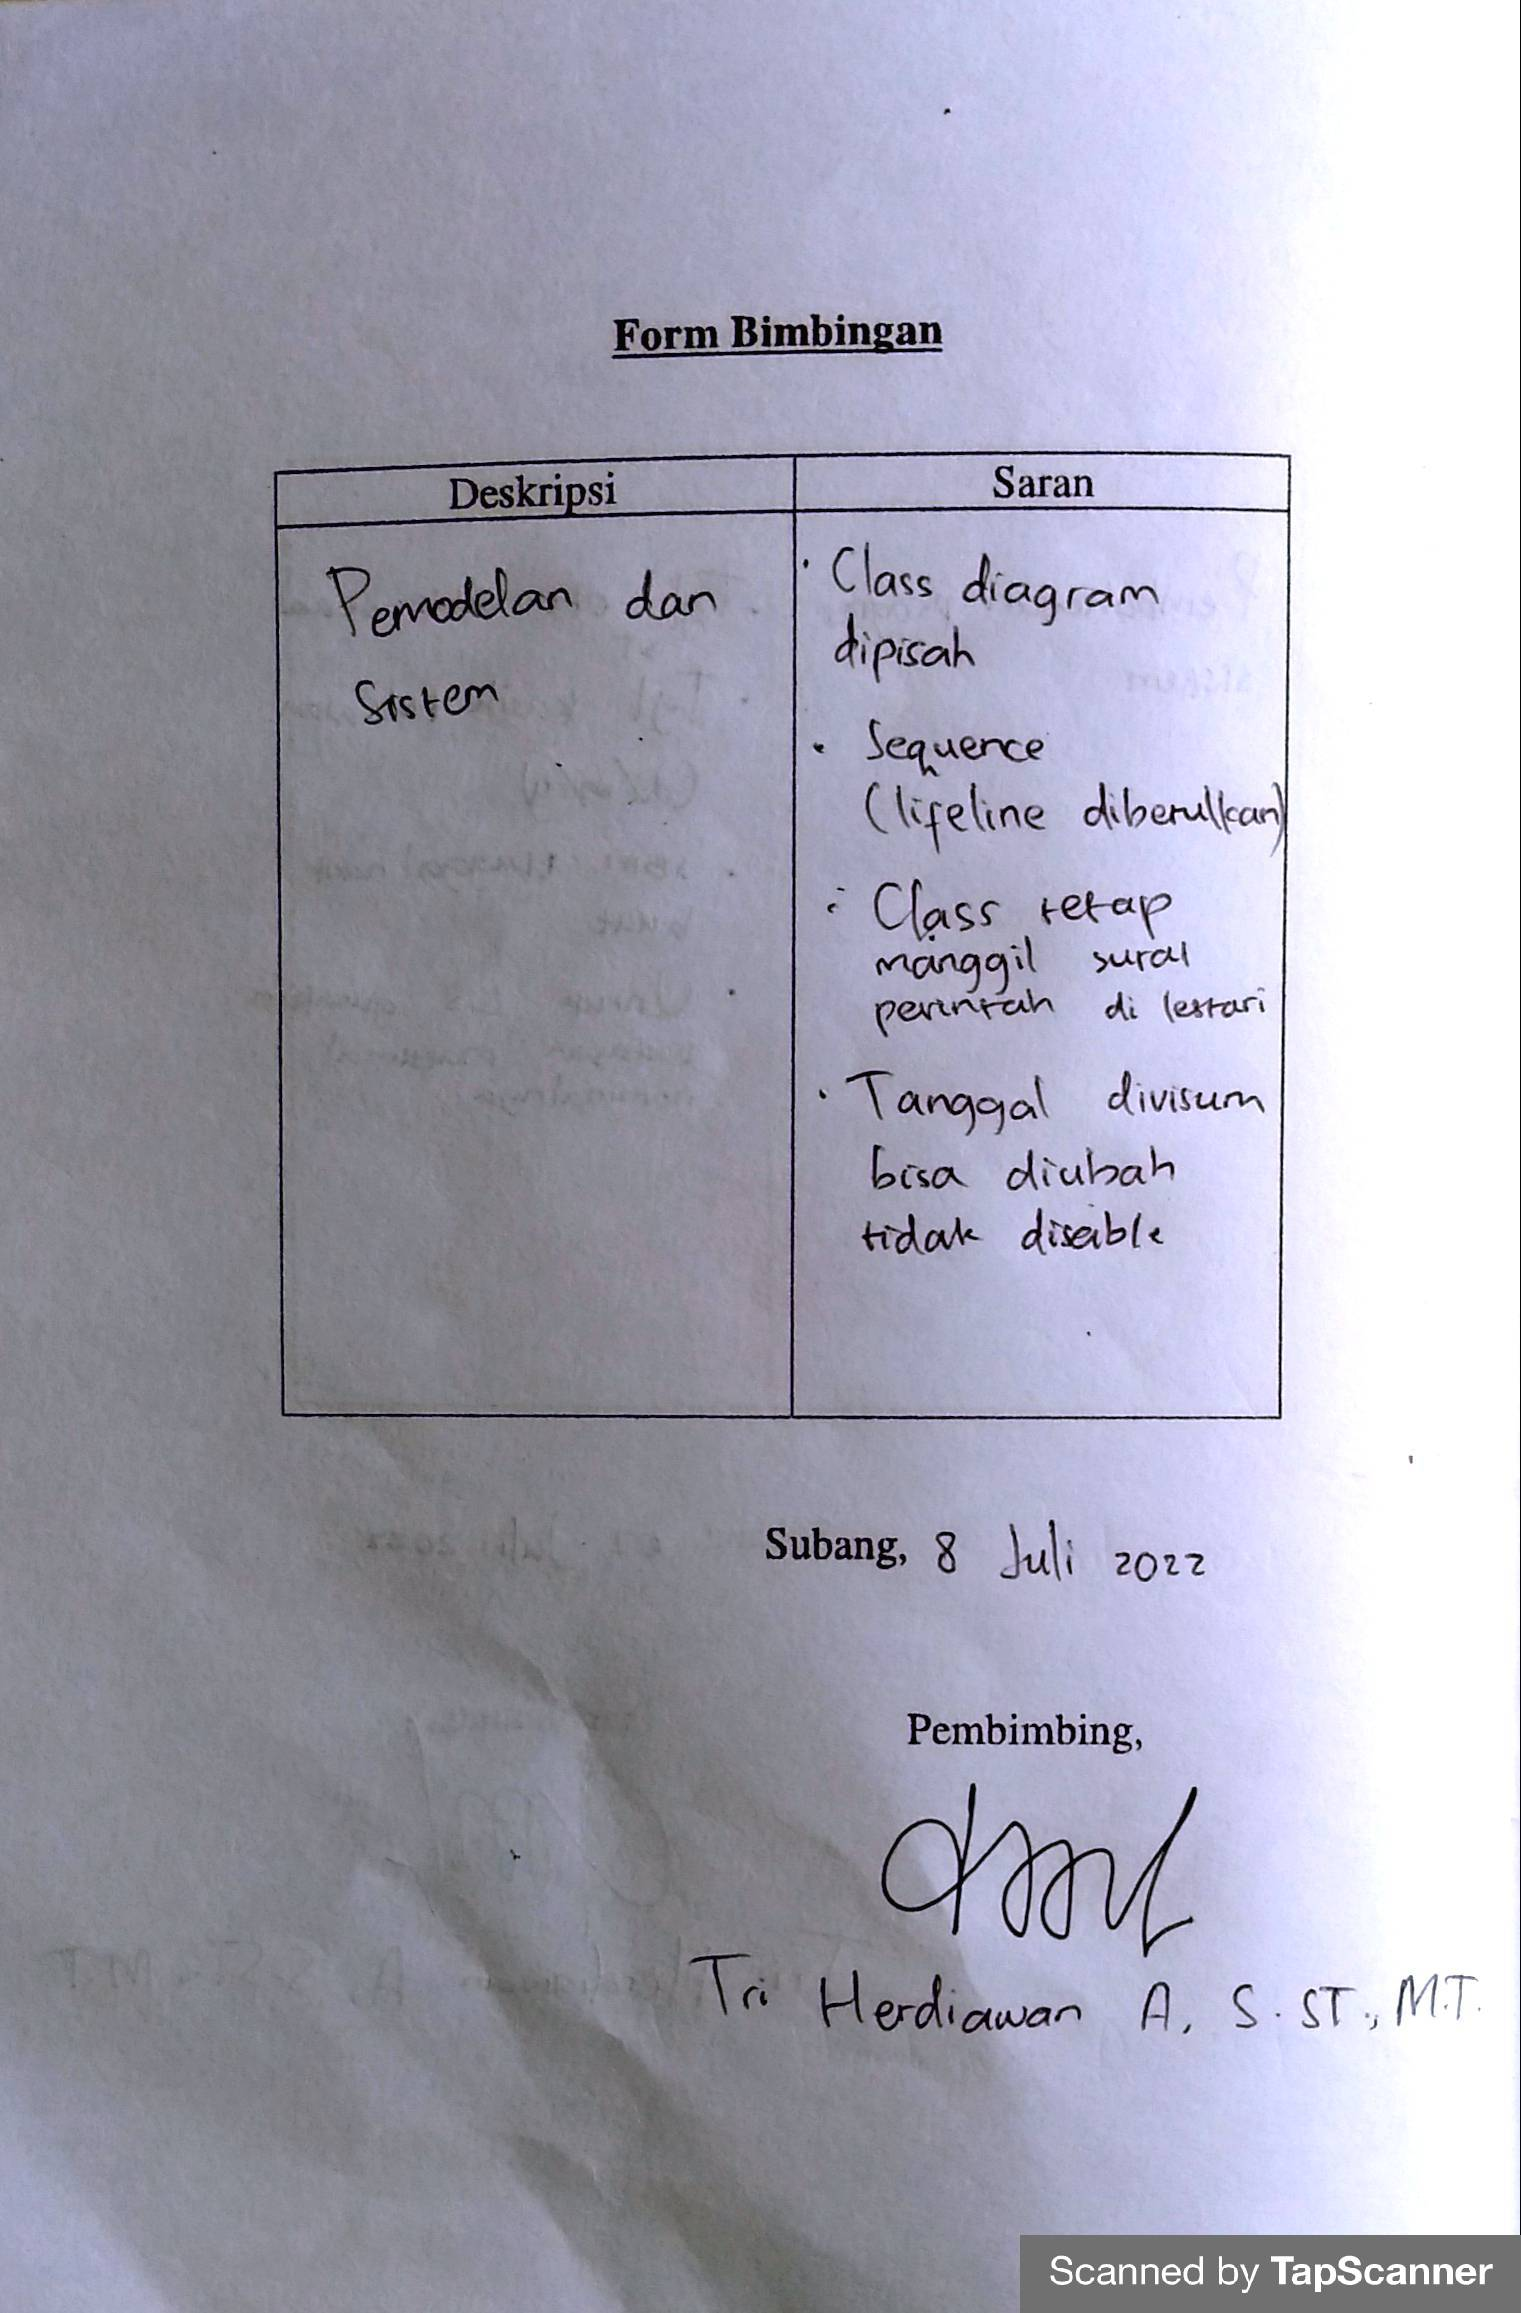 Form Bimbingan
Deskripsi
Saran
Pemodelan dan
Sistem
· Class diagram
dipisah
· Sequence
(lifeline diberulkan)
· Class tetap
manggil surat
perintah di lestari
· Tanggal divisum
bisa diubah
tidak diseible
Subang, 8 Juli 2022
Pembimbing,
Tri Herdiawan A, S.ST., M.T.
Scanned by TapScanner